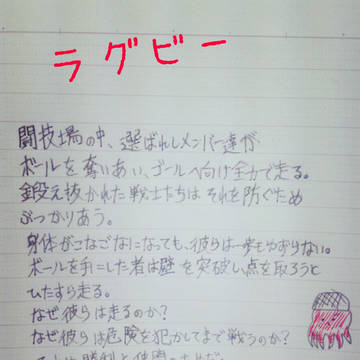 ラグビー
闘技場の中、選ばれしメンバー達が
ボールを奪いあい、ゴールへ向け全力で走る。
鍛え抜かれた戦士たちは それを防ぐため
ぶつかりあう。
身体がこなごなになっても、彼らは一歩もゆずらない。
ボールを手にした者は壁を突破し点を取ろうと
ひたすら走る。
なぜ彼らは走るのか?
なぜ彼らは危険を犯かしてまで戦うのか?